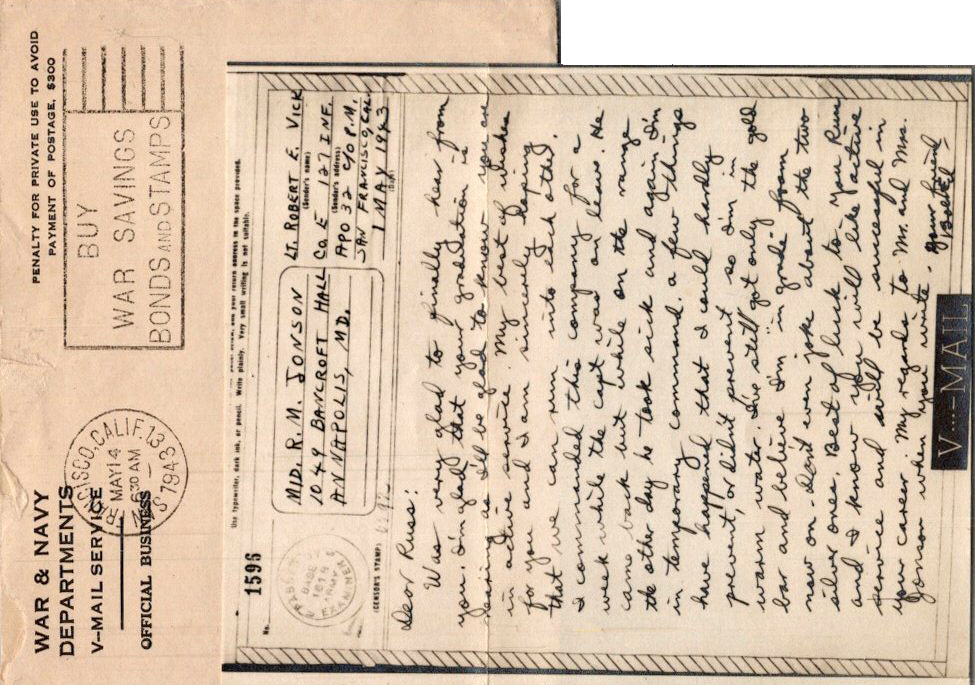 WAR & NAVY
DEPARTMENTS
V--MAIL SERVICE
OFFICIAL BUSINESS
FRANCISCO, CALIF. 13
MAY 14
6 30 AM
1943
PENALTY FOR PRIVATE USE TO AVOID
PAYMENT OF POSTAGE, $300
BUY
WAR SAVINGS
BONDS AND STAMPS
Use typewriter, dark ink, or pencil. Write plainly. Very small writing is not suitable.
No.
1596
PASSED BY
BASE
1819
ARMY
EXAMINER
(CENSOR'S STAMP)
MID. R. M. JONSON
1049 BANCROFT HALL
ANNAPOLIS, MD.
LT. ROBERT E. VICK
(Sender's name)
CO E 127 INF.
(Sender's address)
APO 32 C/O P.M.
SAN FRANCISCO, CAL.
1 MAY 1943
(Date)
Dear Russ:
Was very glad to finally hear from
you. I'm glad that your graduation is
nearing as I'll be glad to know you are
in active service. My best of wishes
for you and I am sincerely hoping
that we can run into each other.
I commanded this company for a
week while the capt was on leave. He
came back but while on the range
the other day he took sick and again I'm
in temporary command. a few things
have happened that I could hardly
prevent, or didn't prevent so I'm in
warm water. I've still got only the gold
bar and believe I'm "in grade" from
now on - don't even joke about the two
silver ones. Best of luck to you Russ
and I know you will like active
service and will be successful in
your career. My regards to Mr. and Mrs.
Jonson when you write.
Your friend
V····—MAIL